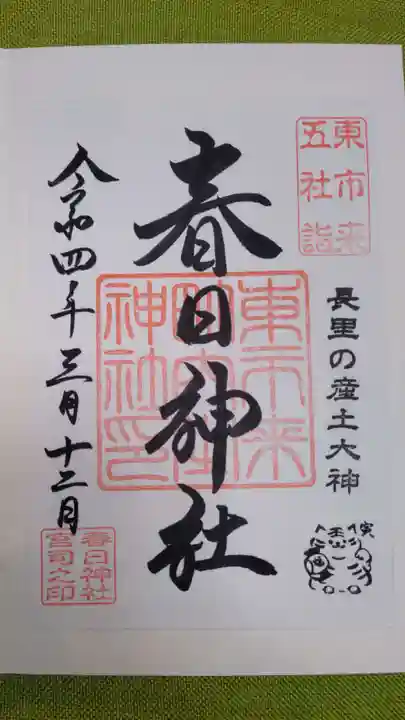 東市来
五社詣
長里の産土大神
春日神社
東市来
神社印
令和四年三月十二日
春日神社
宮司之印